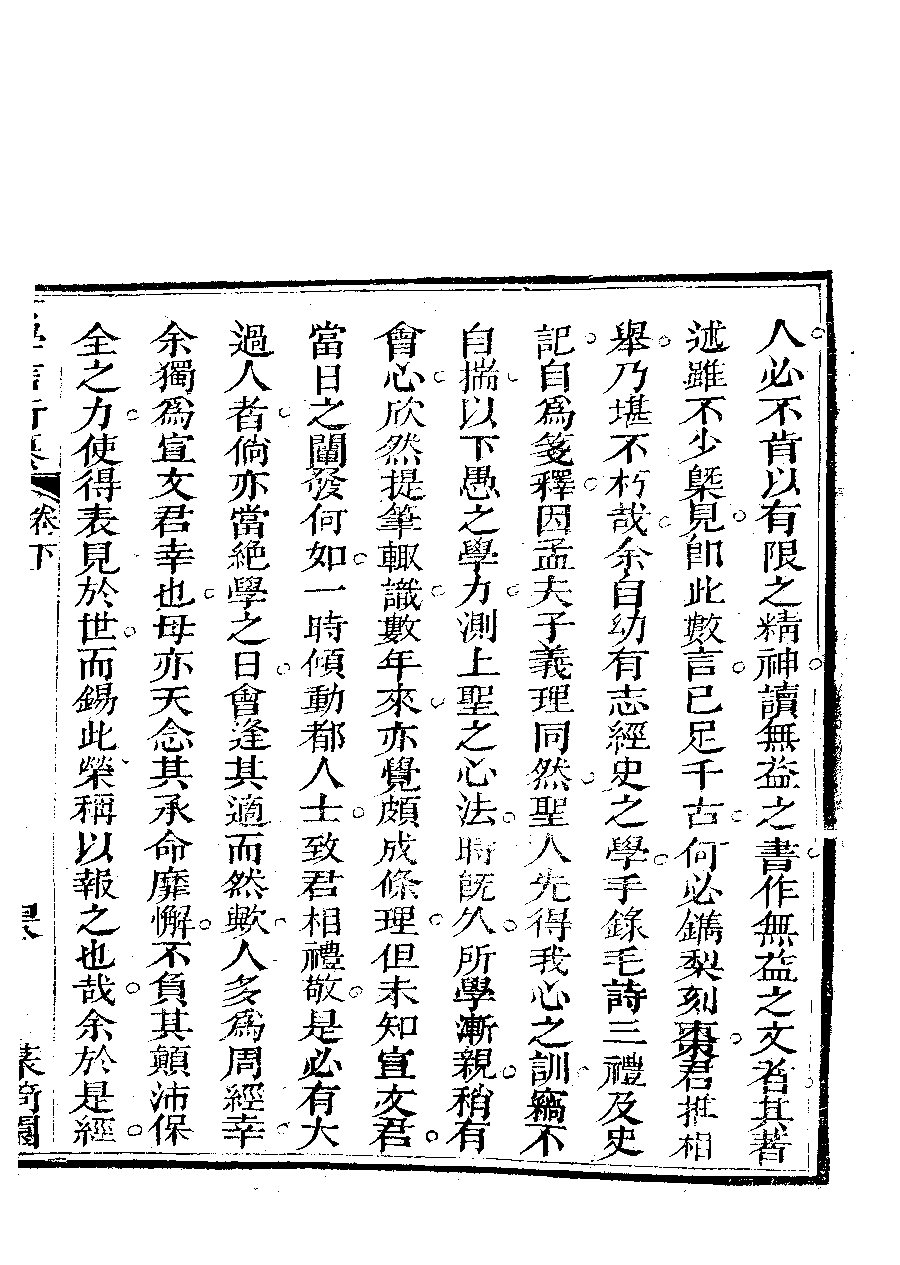 人必不肯以有限之精神讀無益之書作無益之文者其著
述雖不少槩見卽此數言已足千古何必鐫梨刻棗君推相
舉乃堪不朽哉余自幼有志經史之學手錄毛詩三禮及史
記自為箋釋因孟夫子義理同然聖人先得我心之訓竊不
自揣以下愚之學力測上聖之心法時旣久所學漸親稍有
會心欣然提筆輙識數年來亦覺頗成條理但未知宣文君
當日之闡發何如一時傾動都人士致君相禮敬是必有大
過人者倘亦當絕學之日會逢其適而然歟人多為周經幸
余獨為宣文君幸也母亦天念其承命靡懈不負其顛沛保
全之力使得表見於世而錫此榮稱以報之也哉余於是經
卷下